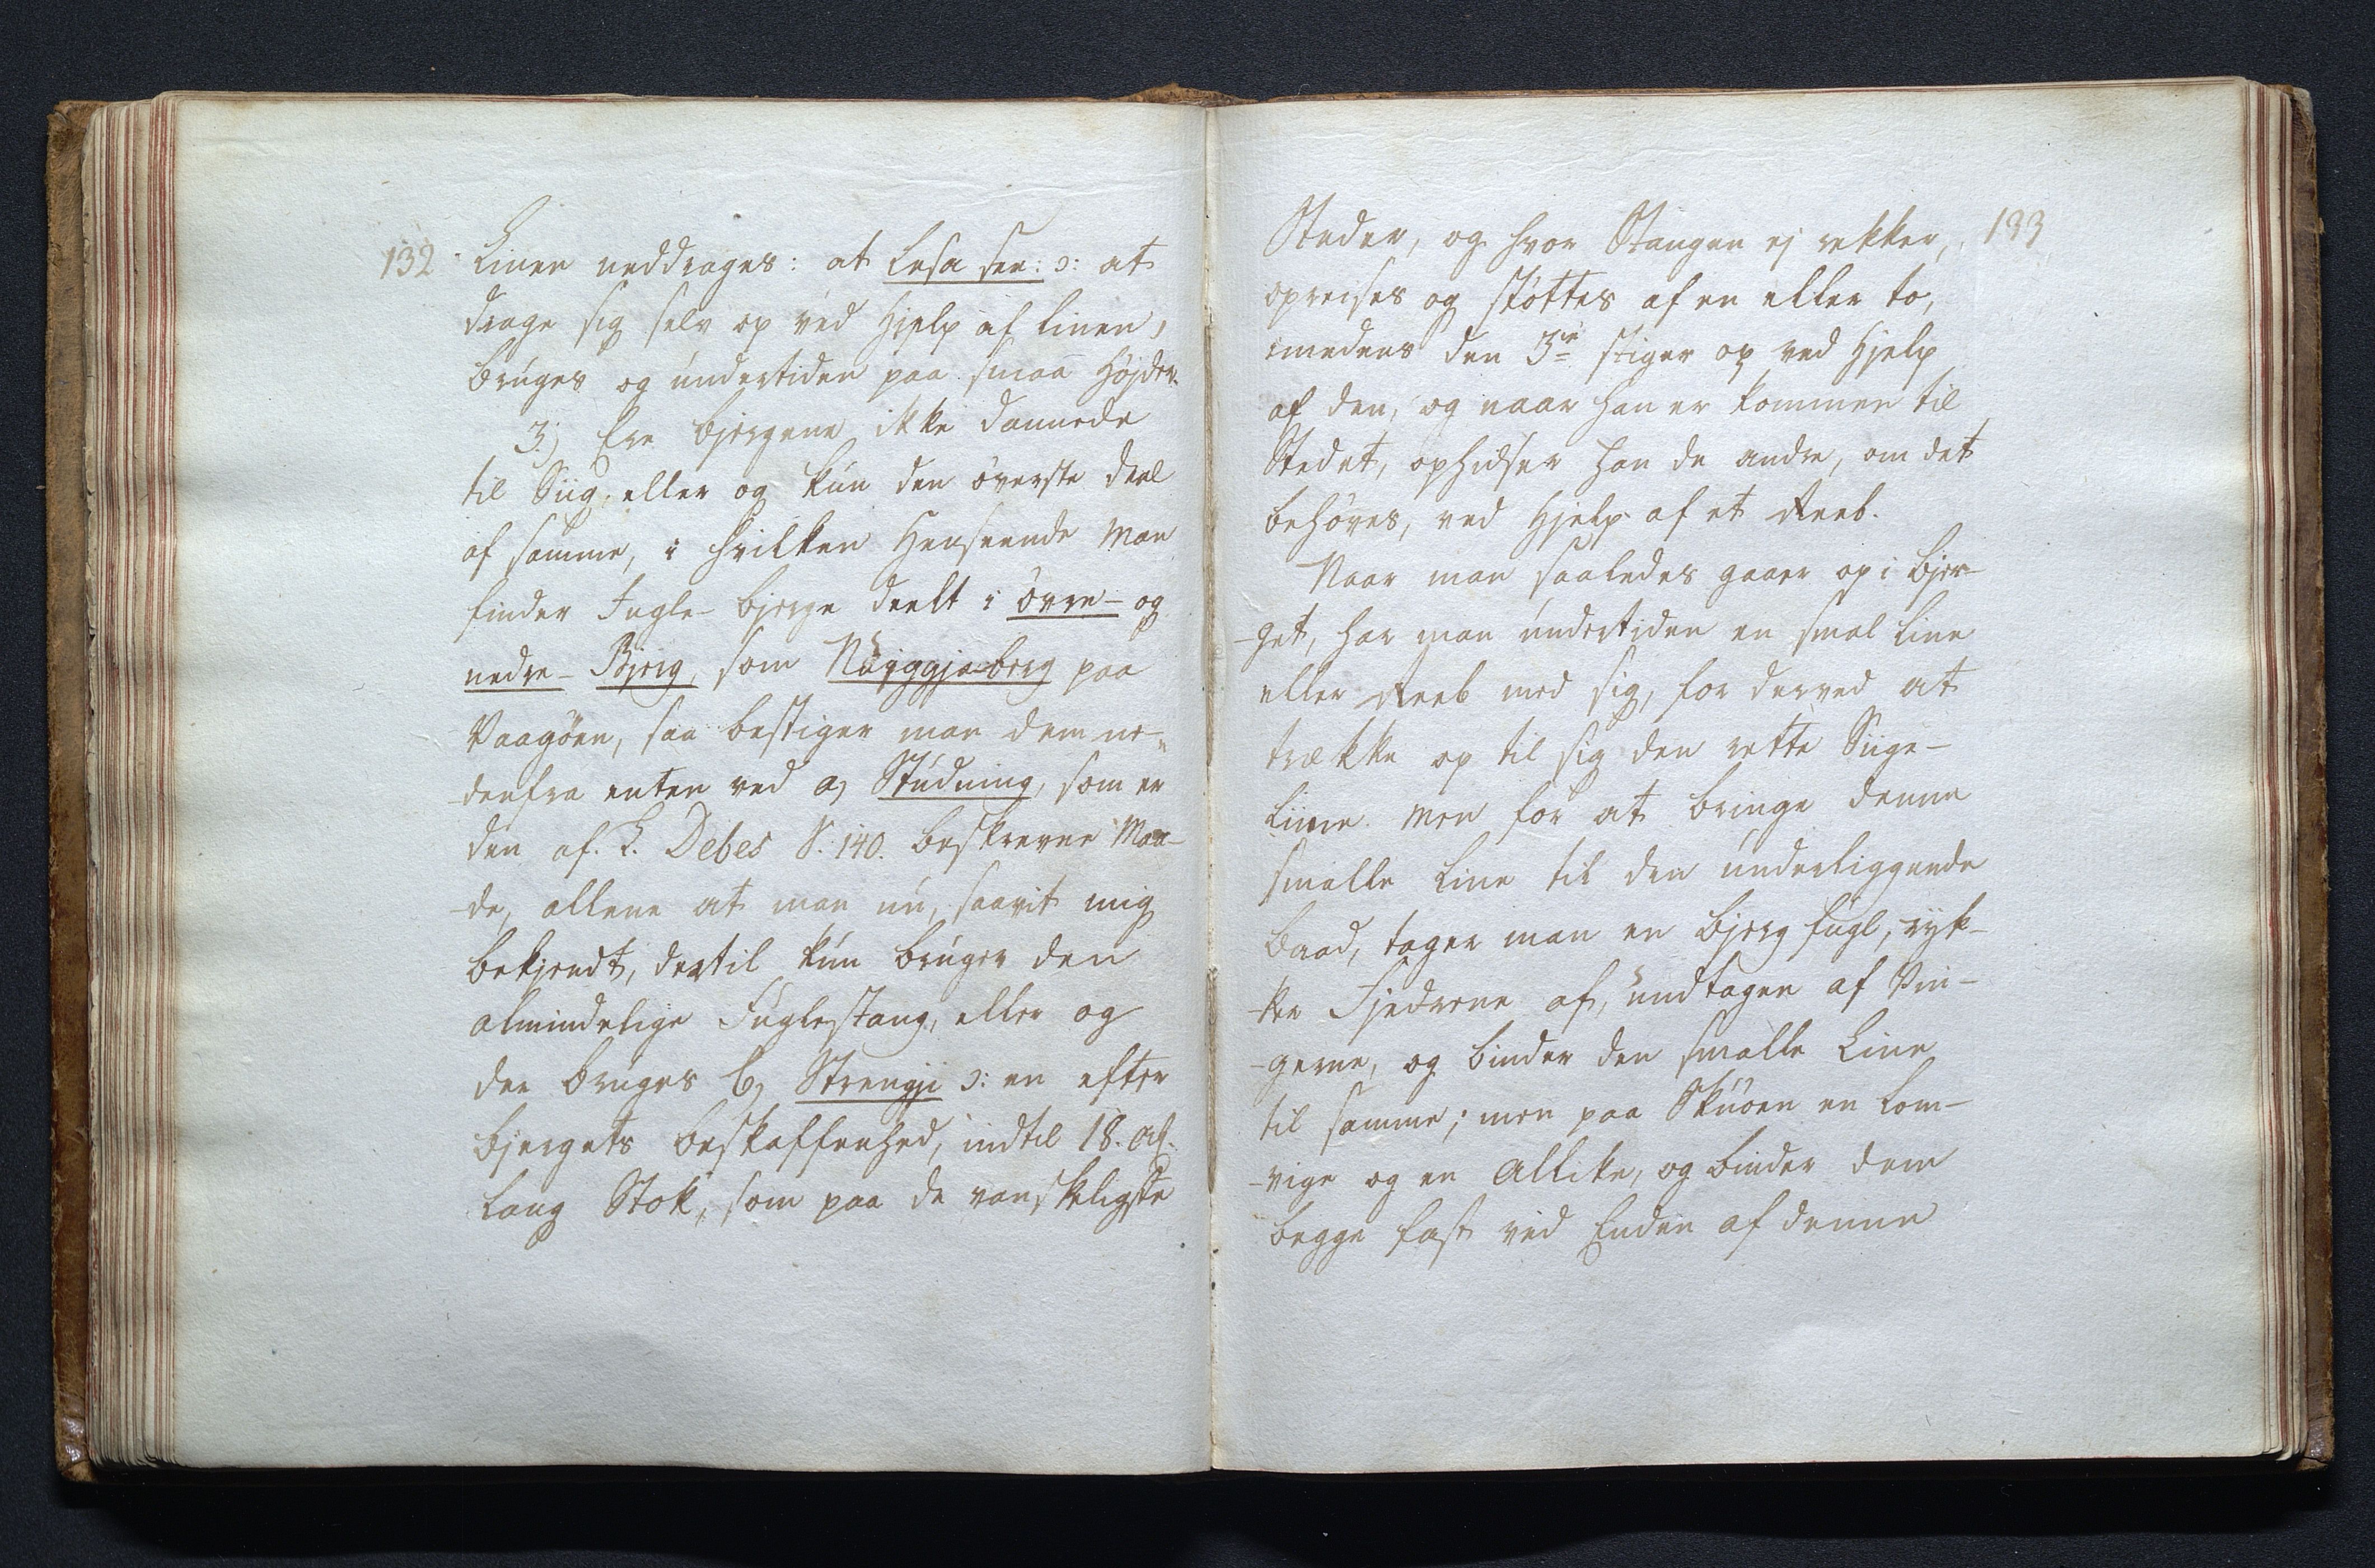 132
Linen neddrages: at lesa see: ɔ: at
drage sig selv op ved Hjelp af Linen,
bruges og undertiden paa smaa Højder.
3.) Ere Bjergene ikke dannede
til Siig, eller og kun den överste Deel
af samme, i hvilken Henseende man
finder Fugle-bjerge deelt i övre- og
nedre- Bjerg, som paa
Vaagöen, saa bestiger man dem ne-
denfra enten ved a) Studning, som er
den af L. Debes S. 140. beskrevne Maa-
-de, allene at man nu, saavit mig
bekjendt, dertil kun bruger den
almindelige Fuglestang, eller og
der bruges b) Strengji ɔ: en efter
Bjergets Beskaffenhed, indtil 18. Al.
lang Stok, som paa de vanskeligste
133
Steder, og hvor Stangen ej rekker,
opreises og stöttes af en eller to,
imedens den 3die stiger op ved Hjelp
af den, og naar han er kommen til
Stedet, ophidser han de andre, om det
behöves, ved Hjelp af et Reeb.
Naar man saaledes gaaer op i Bjer-
-get, har man undertiden en smal Line
eller Reeb med sig, for derved at
trække op til sig den rette Siige-
Liine. Men for at bringe denne
smalle Line til den underliggende
Baad, tager man en Bjerg fugl, ryk-
-ker Fjedrene af, undtagen af Vin-
-gerne, og binder den smalle Line
til samme; men paa Skuöen en Lom-
-vige og en Allike, og binder dem
begge fast ved Enden af denne